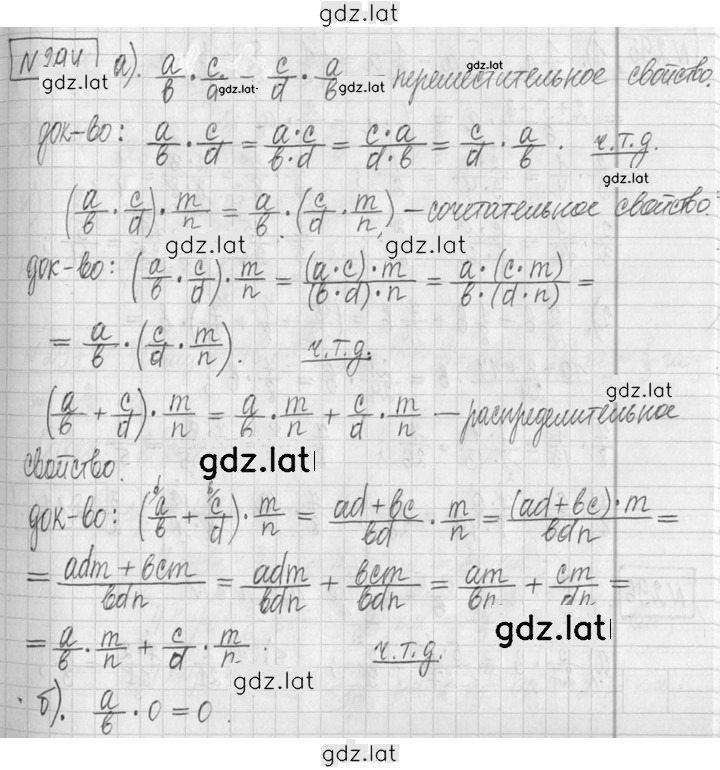 gdz.lat
№294 а). a/b · c/d = c/d · a/b – переместительное свойство.
gdz.lat gdz.lat gdz.lat gdz.lat
док-во: a/b · c/d = a·c/b·d = c·a/d·b = c/d · a/b . ч.т.д.
gdz.lat
(a/b · c/d) · m/n = a/b · (c/d · m/n) – сочетательное свойство.
gdz.lat gdz.lat
док-во: (a/b · c/d) · m/n = (a·c)·m/(b·d)·n = a·(c·m)/b·(d·n) =
= a/b · (c/d · m/n). ч.т.д.
gdz.lat
(a/b + c/d) · m/n = a/b · m/n + c/d · m/n – распределительное
свойство.
gdz.lat
док-во: (a/b + c/d) · m/n = ad+bc/bd · m/n = (ad+bc)·m/bdn =
= adm+bcm/bdn = adm/bdn + bcm/bdn = am/bn + cm/dn =
gdz.lat
= a/b · m/n + c/d · m/n . ч.т.д.
gdz.lat
б). a/b · 0 = 0 .
gdz.lat